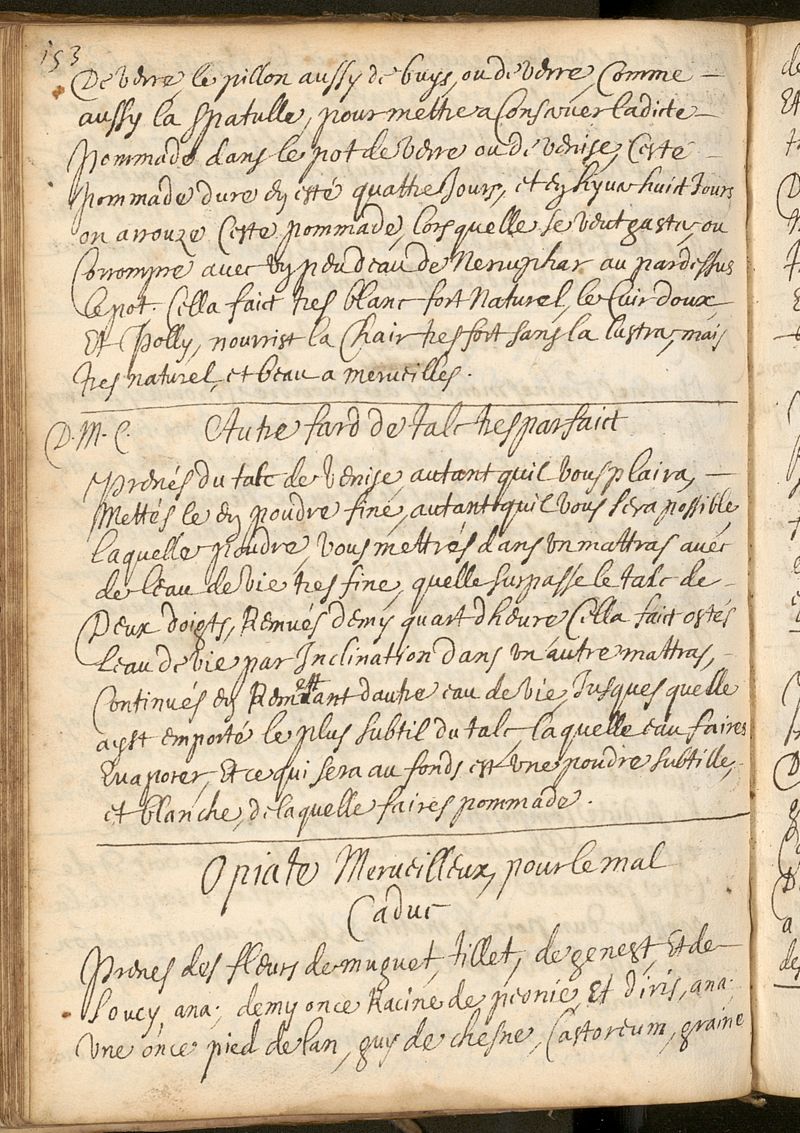 153
De verre, le pillon aussy de buys, ou de verre, Comme
aussy la spatulle, pour mettre a Conserver ladicte
Pommade dans le pot de verre ou de venise, Ceste
pommade dure en esté quattre Jours, et en hyver huict Jours
on arrouze Ceste pommade, lorsquelle se veut gaster, ou
Corrompre avec un peu deau de Nenuphar au pardessus
le pot. Cella faict tres blanc fort Naturel, le Cuir doux
Et Polly, nourrist la Chair tres fort sans la lustrer, mais
tres naturel, et beau a merueilles.
D. M. C. Autre fard de talc tres parfaict
Prenés du talc de Venise, autant quil vous plaira,
Mettés le en poudre fine, autant quil vous sera possible
laquelle poudre, vous mettrés dans un mattras avec
de leau de vie tres fine, quelle surpasse le talc de
Deux doigts, Remués demy quart dheure Cella faict ostés
leau de vie par Inclination dans un autre mattras,
Continués en Remettant dautre eau de vie, Jusques quelle
ayst emporté le plus subtil du talc, laquelle eau faires
Evaporer, Et ce qui sera au fonds est une poudre subtille,
et blanche, de laquelle faires pommade.
Opiate Merueilleux, pour le mal
Caduc
Prenes des fleurs de muguet, tillet, de genest, Et de
Soucy, ana; demy once Racine de peonie, Et d'iris, ana;
Une once pied delan, guy de chesne, Castoreum, graine